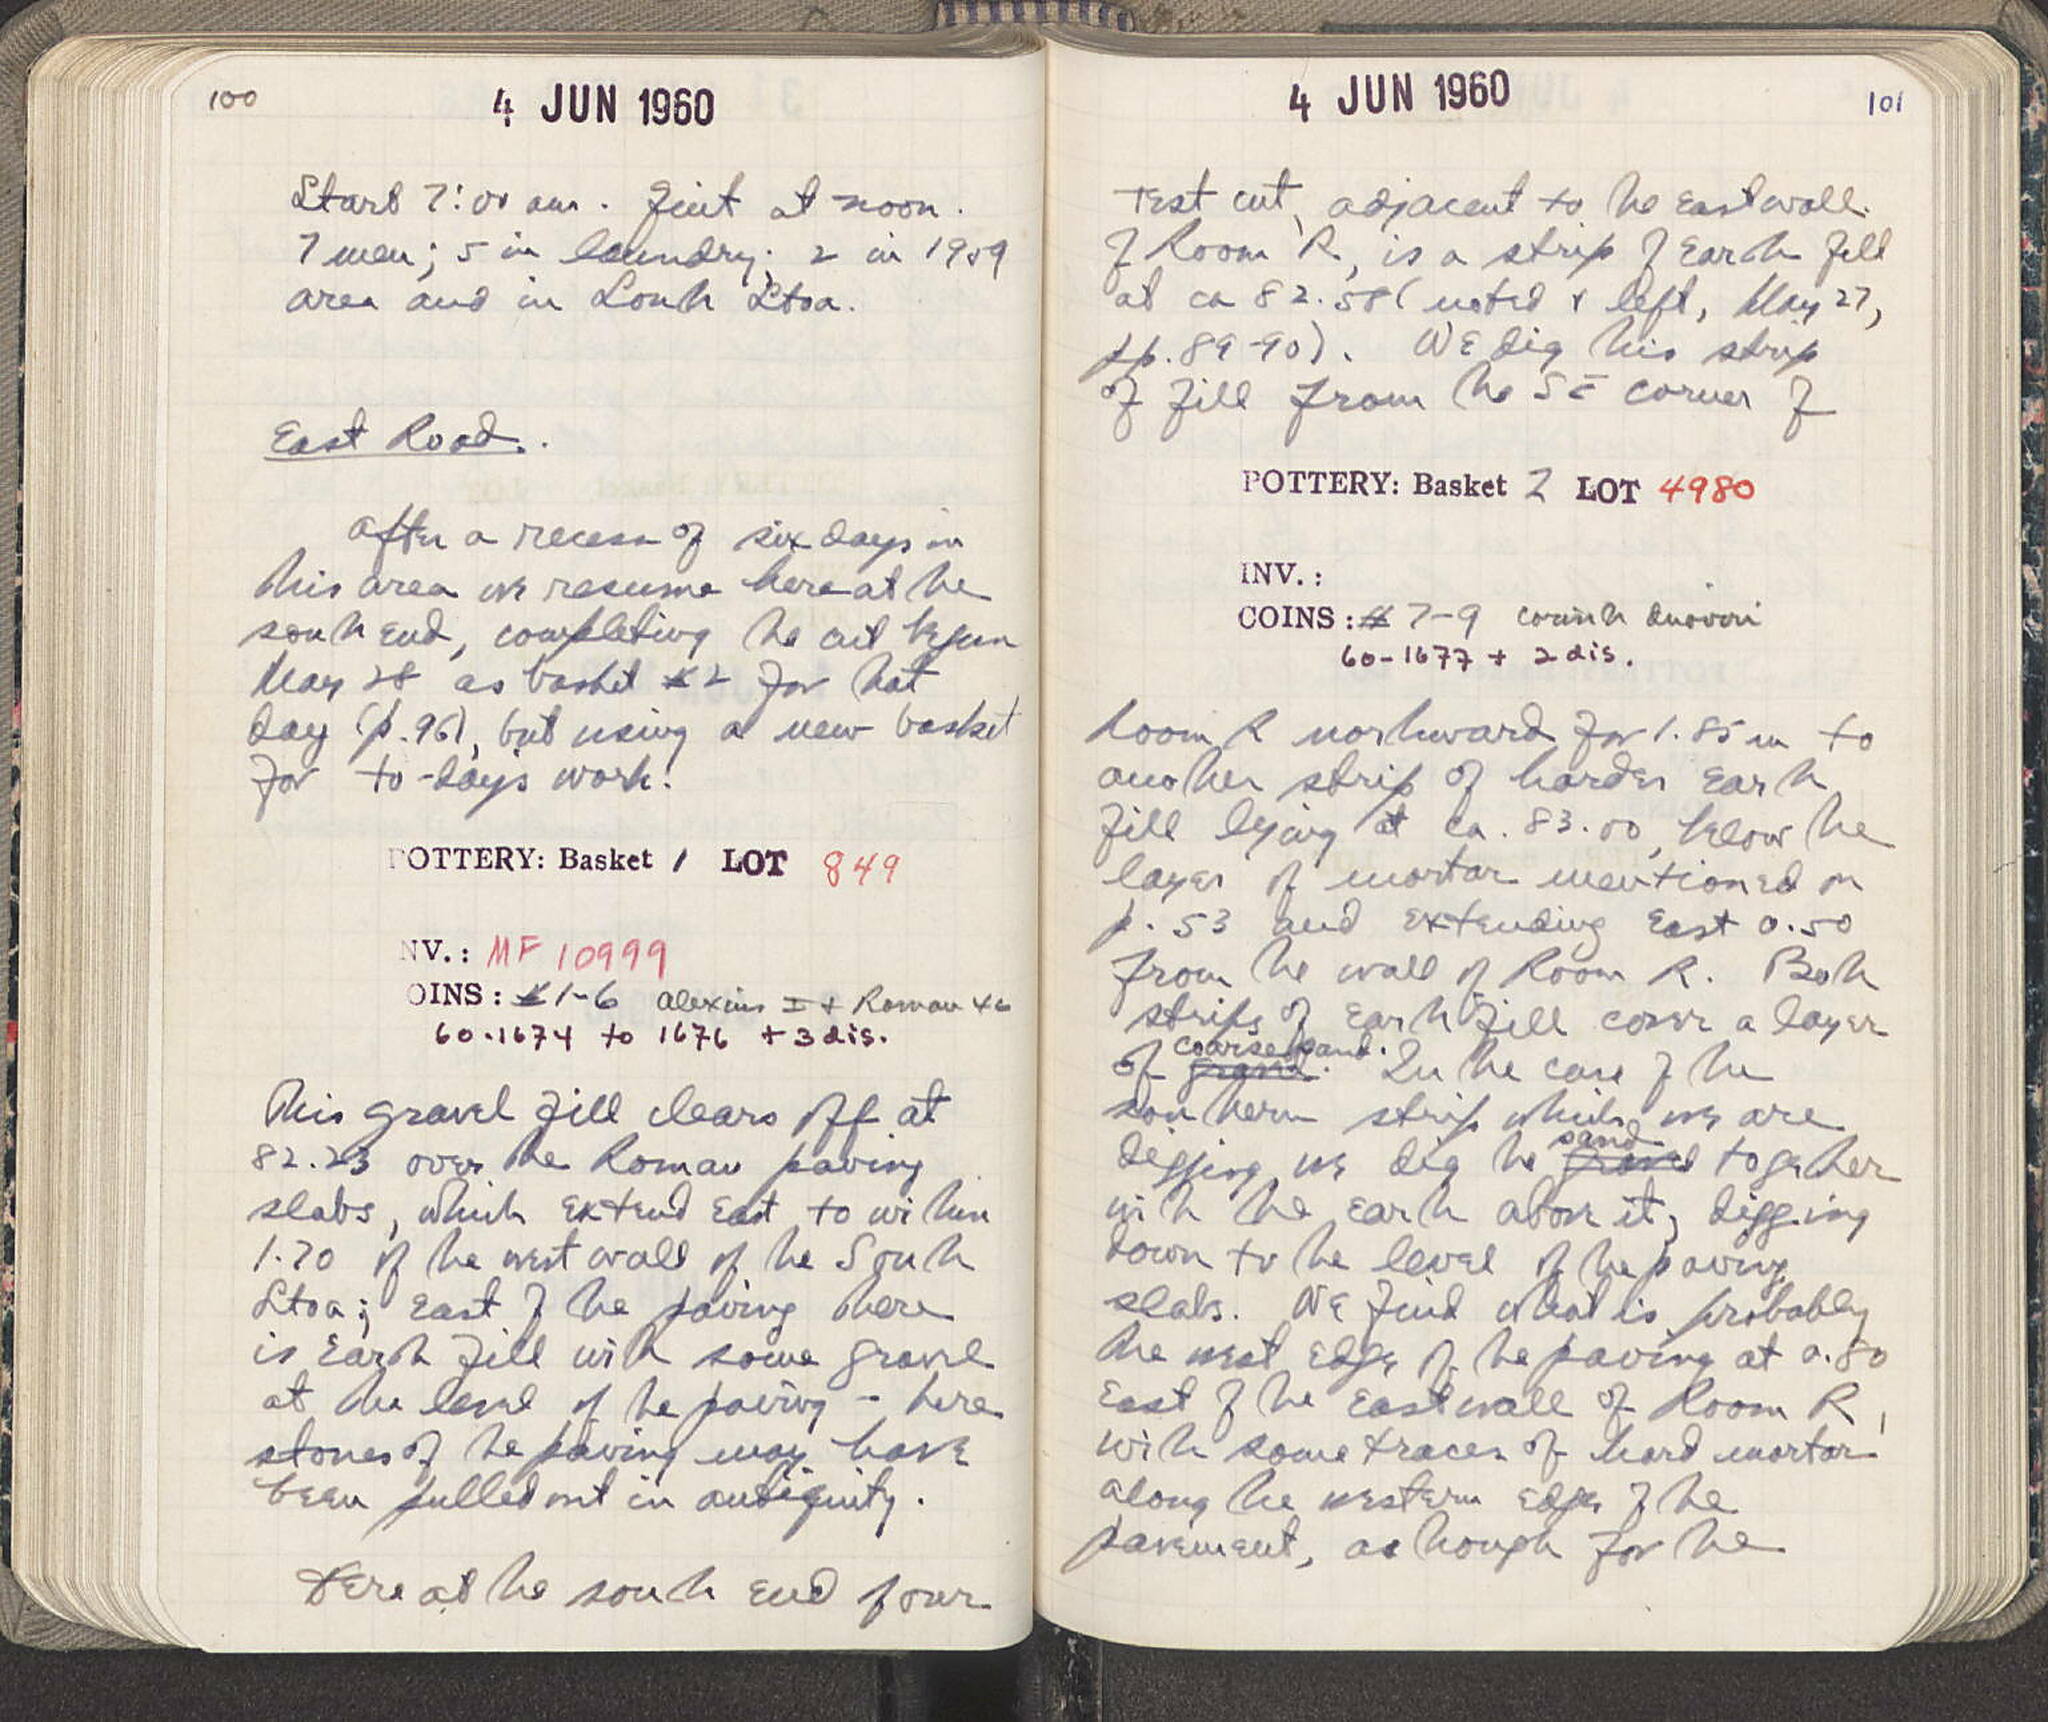 100
4 JUN 1960
Start 7:00 am. Quit at noon.
7 men; 5 in laundry; 2 in 1959
area and in South Stoa.
East Road.
After a recess of six days in
this area we resume here at the
south end, completing the cut begun
May 28 as basket #2 for that
day (p. 96), but using a new basket
for to-day's work.
POTTERY: Basket 1 LOT 849
NV.: MF 10999
OINS: #1-6 Alexius I + Roman
60-1674 to 1676 + 3 dis.
This gravel fill clears off at
82.23 over the Roman paving
slabs, which extend East to within
1.70 of the west wall of the South
Stoa; East of the paving there
is Earth fill with some gravel
at the level of the paving - here
stones of the paving may have
been pulled out in antiquity.
Here at the south end of our
4 JUN 1960
101
Test cut, adjacent to the East wall
of Room R, is a strip of Earth fill
at ca 82.58 (noted & left, May 27,
pp. 89-90). We dig this strip
of fill from the SE corner of
POTTERY: Basket 2 LOT 4980
INV.:
COINS: # 7-9 Corinth duoviri
60-1677 + 2 dis.
Room R northward for 1.85 m to
another strip of harder Earth
fill lying at ca. 83.00, below the
layer of mortar mentioned on
p. 53 and extending East 0.50
from the wall of Room R. Both
strips of Earth fill cover a layer
of gravel coarse sand. In the case of the
southern strip which we are
digging we dig the gravel sand together
with the Earth above it, digging
down to the level of the paving
slabs. We find what is probably
the west edge of the paving at 0.80
East of the East wall of Room R,
with some traces of hard mortar
along the western edge of the
pavement, as though for the